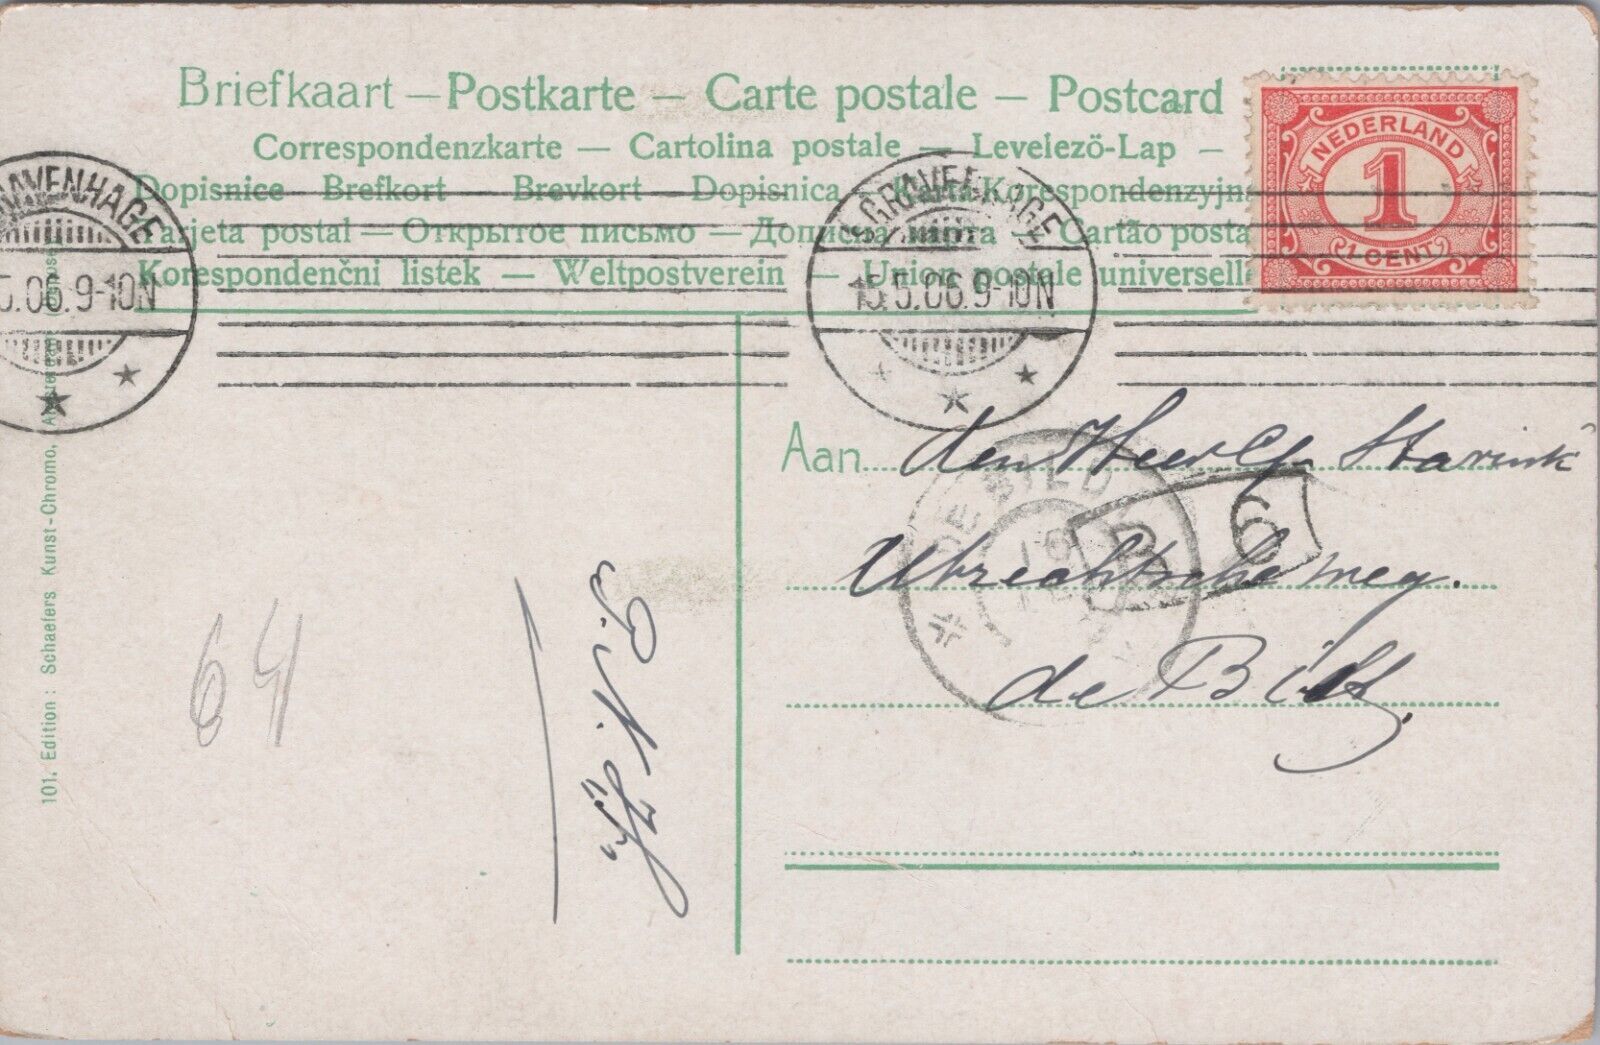 Briefkaart — Postkarte — Carte postale — Postcard
Correspondenzkarte — Cartolina postale — Levelezö-Lap —
Dopisnice Brefkort — Brevkort — Dopisnica
Tarjeta postal — Открытое письмо —
Korespondenčni listek — Weltpostverein — Union postale universelle
NEDERLAND
1
(1-CENT)
'S GRAVENHAGE
15.5.06.9-10N
AVENHAGE
5.06.9-10N
Aan den Heer Starink
Utrechtscheweg.
de Bilt.
DE BILD
6
64
101. Edition: Schaefers Kunst-Chromo,